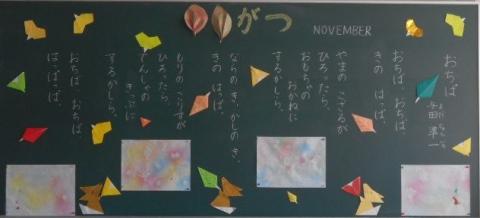 がつ
NOVEMBER
おちば
与田 準一
おちば おちば
きの はっぱ、
やまの こざるが
ひろったら、
おもちゃの
おかねに
するかしら。
ならの き、かしの き、
きの はっぱ、
もりの こりすが
ひろったら、
でんしゃの
きっぷに
するかしら。
おちば おちば
はっぱっぱ。